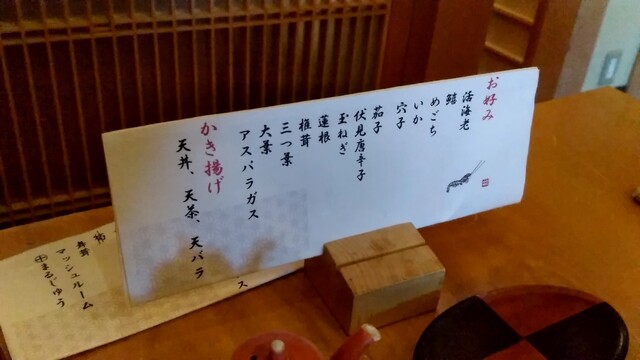 お好み
活海老
鱚
めごち
いか
穴子
茄子
伏見唐辛子
玉ねぎ
蓮根
椎茸
三つ葉
大葉
アスパラガス
かき揚げ
天丼、天茶、天バラ
ス
舞茸
マッシュルーム
まるじゅう